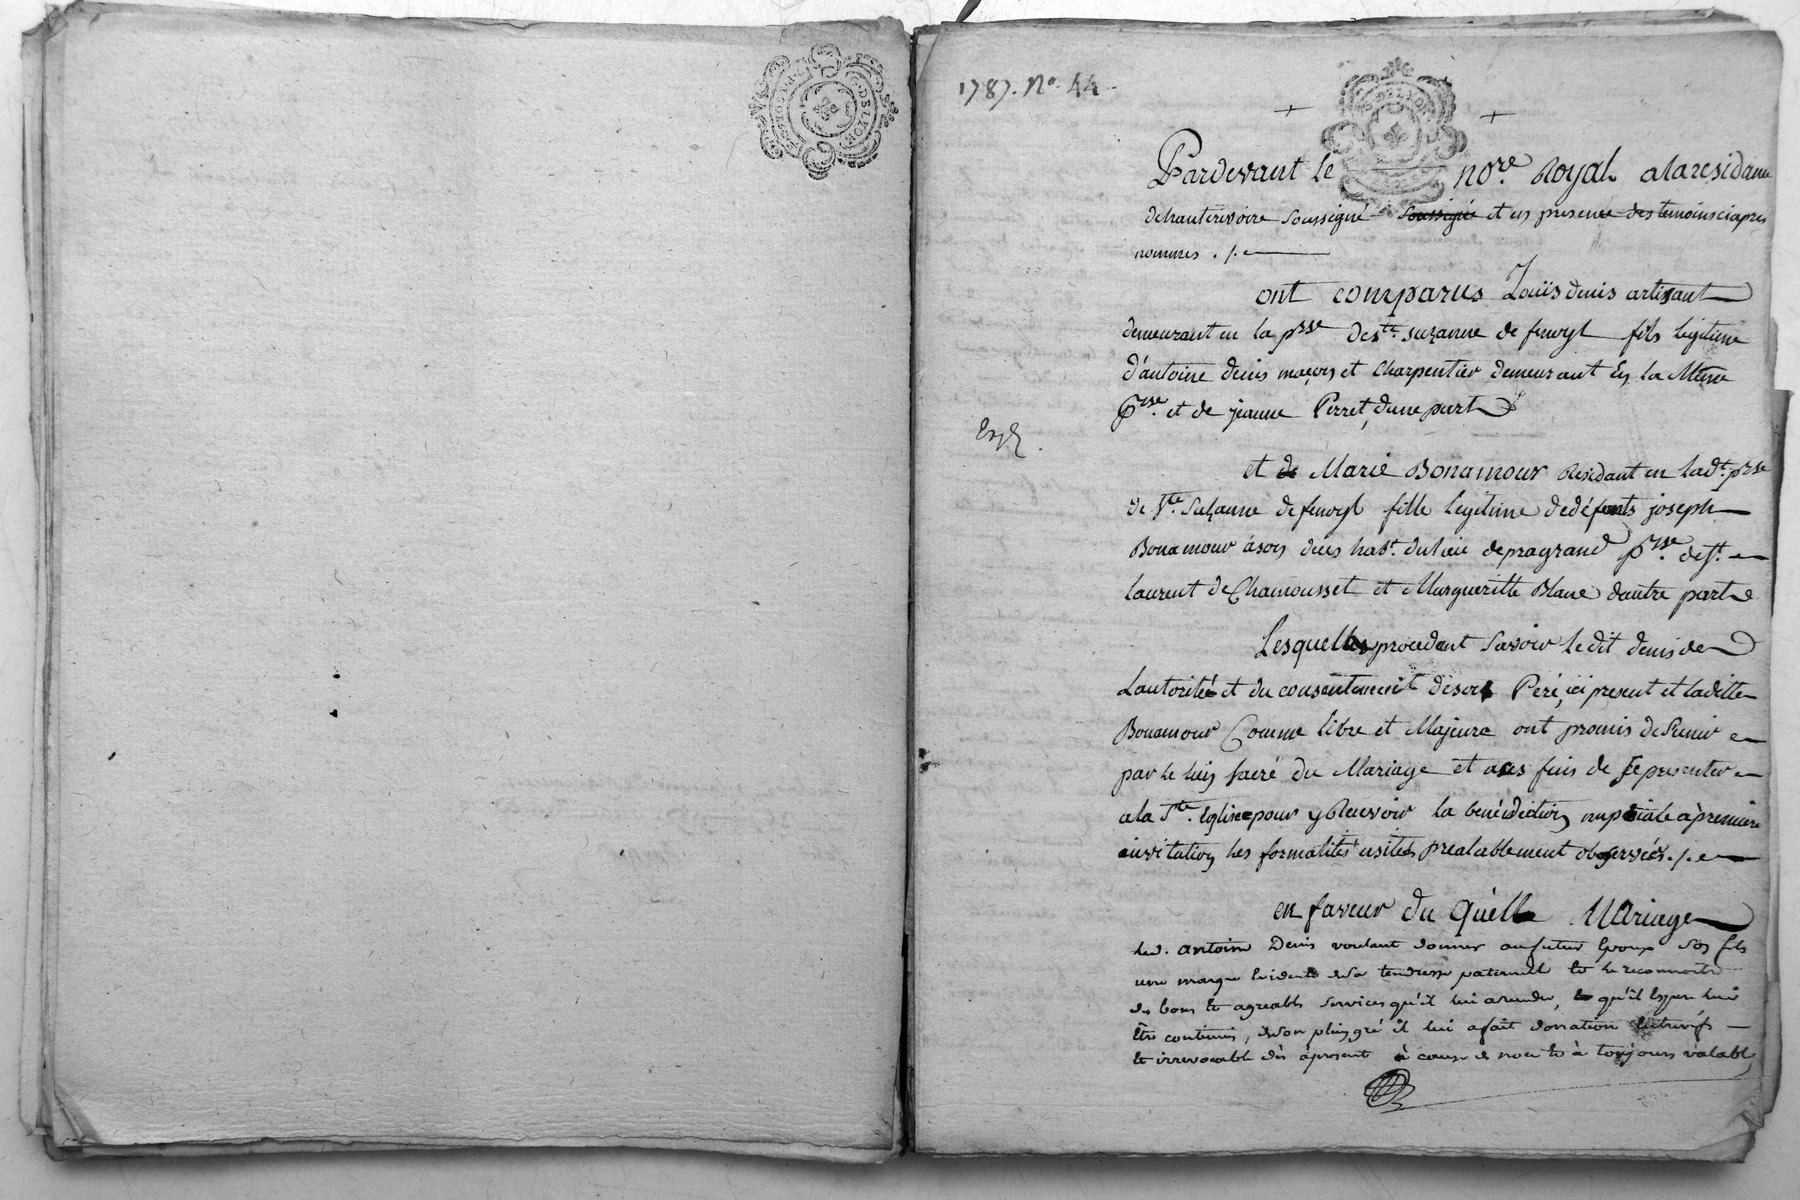 G. DE LYON
1787. No. 44.
G. DE LYON
Pardevant le nore. Royal alaresidance
dehauterivoire soussigné soussigné et en presence des temoins ciapres
nommes ./.
ont comparus Loüis denis artisant
demeurant en la psse de ste. suzanne de fenoyl fils legitime
d'antoine denis maçon et Charpentier demeurant En la Meme
psse. et de jeanne Perret, dune part
Exp.
et de Marie Bonamour Residant en ladt. psse
de Ste. Suzanne de fenoyl fille legitime dedéfunts joseph
Bonamour àson deces habt. du lieu de pragrand psse. de St.
laurent de Chamousset et Margueritte Blanc dautre part
Lesquelles procedant savoir le dit denis de
Lautorité et du consentement deson Peré, ici present et laditte
Bonamour Comme libre et Majeure ont promis de Sunir
par le lien sacré du Mariage et a ces fins de se presenter
ala Ste. Eglise pour y Recevoir la benédiction nuptiale a premiere
invitation les formalités usitées prealablement observées ./.
en faveur du quélle Mariage
led. antoine Denis voulant donner au futur Epoux son fils
une marque Evidente de sa tendresse paternelle et le reconnoitre
des bons et agreables services qu'il lui a rendu, et qu'il Espere lui
Etre continués, de son plein gré il lui a fait donation entrevifs
et irrevocable dès àpresent à cause de noce et à toujours valable